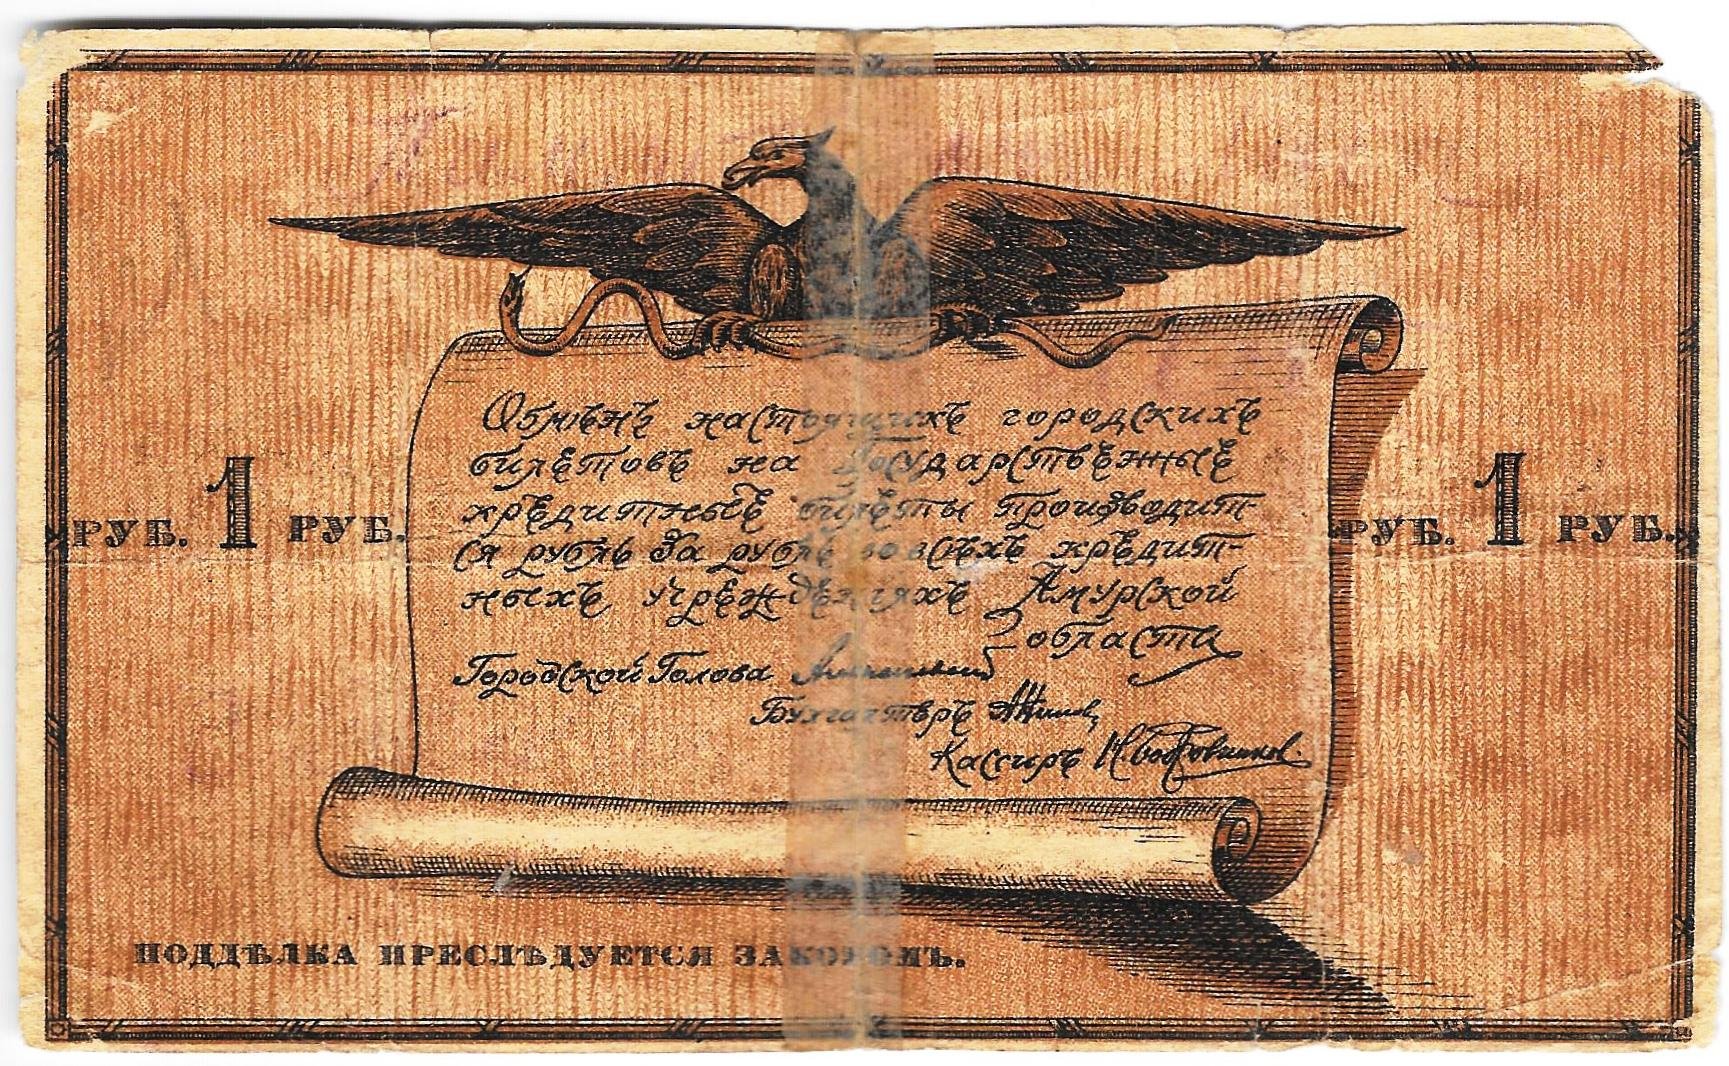 Обмѣнъ настоящихъ городскихъ
билетовъ на Государственные
кредитные билеты производит-
ся рубль за рубль во всѣхъ кредит-
ныхъ учрежденiяхъ Амурской
области
РУБ. 1 РУБ.
РУБ. 1 РУБ.
Городской Голова
Бухгалтеръ
Кассиръ
ПОДДѢЛКА ПРЕСЛѢДУЕТСЯ ЗАКОНОМЪ.